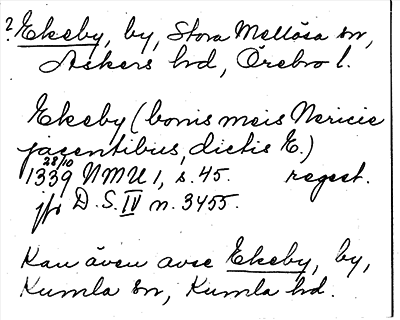 ? Ekeby, by, Stora Mellösa sn,
Askers hd, Örebro l.
Ekeby (bonis meis Nericie
jacentibus, dictis E.)
1339 28/10 NMU 1, s. 45. regest.
jfr D.S. IV n. 3455.
Kan även avse Ekeby, by,
Kumla sn, Kumla hd.